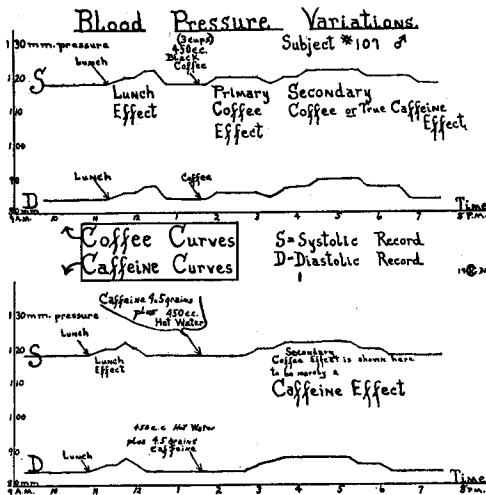 Blood Pressure Variations
130 mm. pressure
(3 cups)
450 c.c.
Black
Coffee
Subject #107 ♂
Lunch
S
120
Lunch
Effect
Primary
Coffee
Effect
Secondary
Coffee or True Caffeine
Effect
100
90
Lunch
Coffee
D
80mm
Time
9 A.M. 10 11 12 1 2 3 4 5 6 7 8 P.M.
Coffee Curves
Caffeine Curves
S=Systolic Record
D=Diastolic Record
Caffeine 4.5 grains
plus 450 c.c.
Hot Water
130 mm. pressure
Lunch
S
120
Lunch
Effect
Secondary
Coffee Effect is shown here
to be merely a
Caffeine Effect
100
90
450 c.c Hot Water
plus 4.5 grains
Caffeine
Lunch
D
Time
9 A.M. 10 11 12 1 2 3 4 5 6 7 8 P.M.